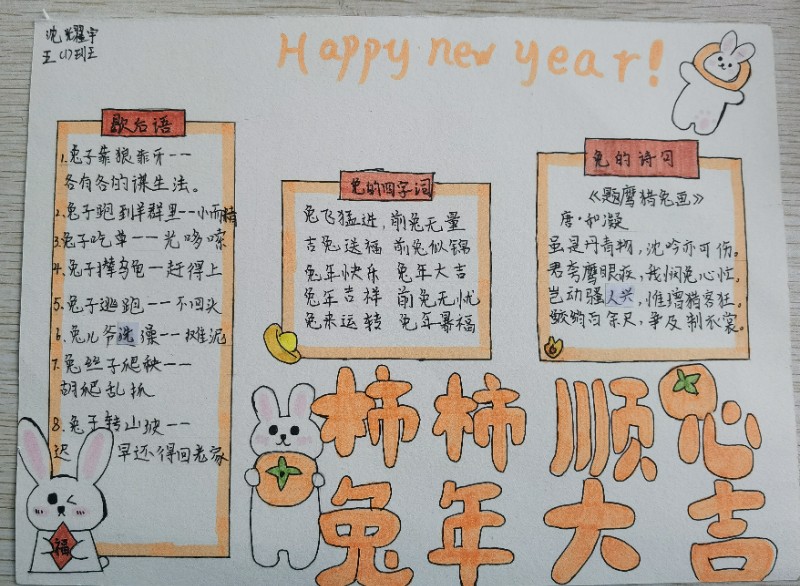 沈耀宇
五(1)班王
Happy new year!
歇后语
1.兔子靠狼乖牙--
各有各的谋生法。
2.兔子跑到羊群里--小而精
3.兔子吃草--光哆嗦
4.兔子撵乌龟--赶得上
5.兔子逃跑--不回头
6.兔儿爷洗澡--摊泥
7.兔丝子爬秧--
胡爬乱抓
8.兔子转山坡--
迟早还得回老家
兔的四字词
兔飞猛进,前兔无量
吉兔送福 前兔似锦
兔年快乐 兔年大吉
兔年吉祥 前兔无忧
兔来运转 兔年暴福
兔的诗句
《题鹰猎兔画》
唐·和凝
虽是丹青物,沈吟亦可伤。
君夸鹰眼疾,我悯兔心忙。
岂动骚人兴,惟增猎客狂。
鲛绡百余尺,争及制衣裳。
福
柿柿顺心
兔年大吉